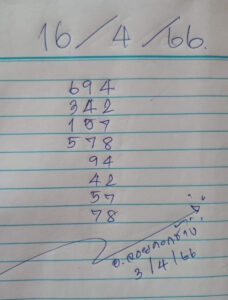 16/4/66.
694
342
157
578
94
42
57
78
3/4/66